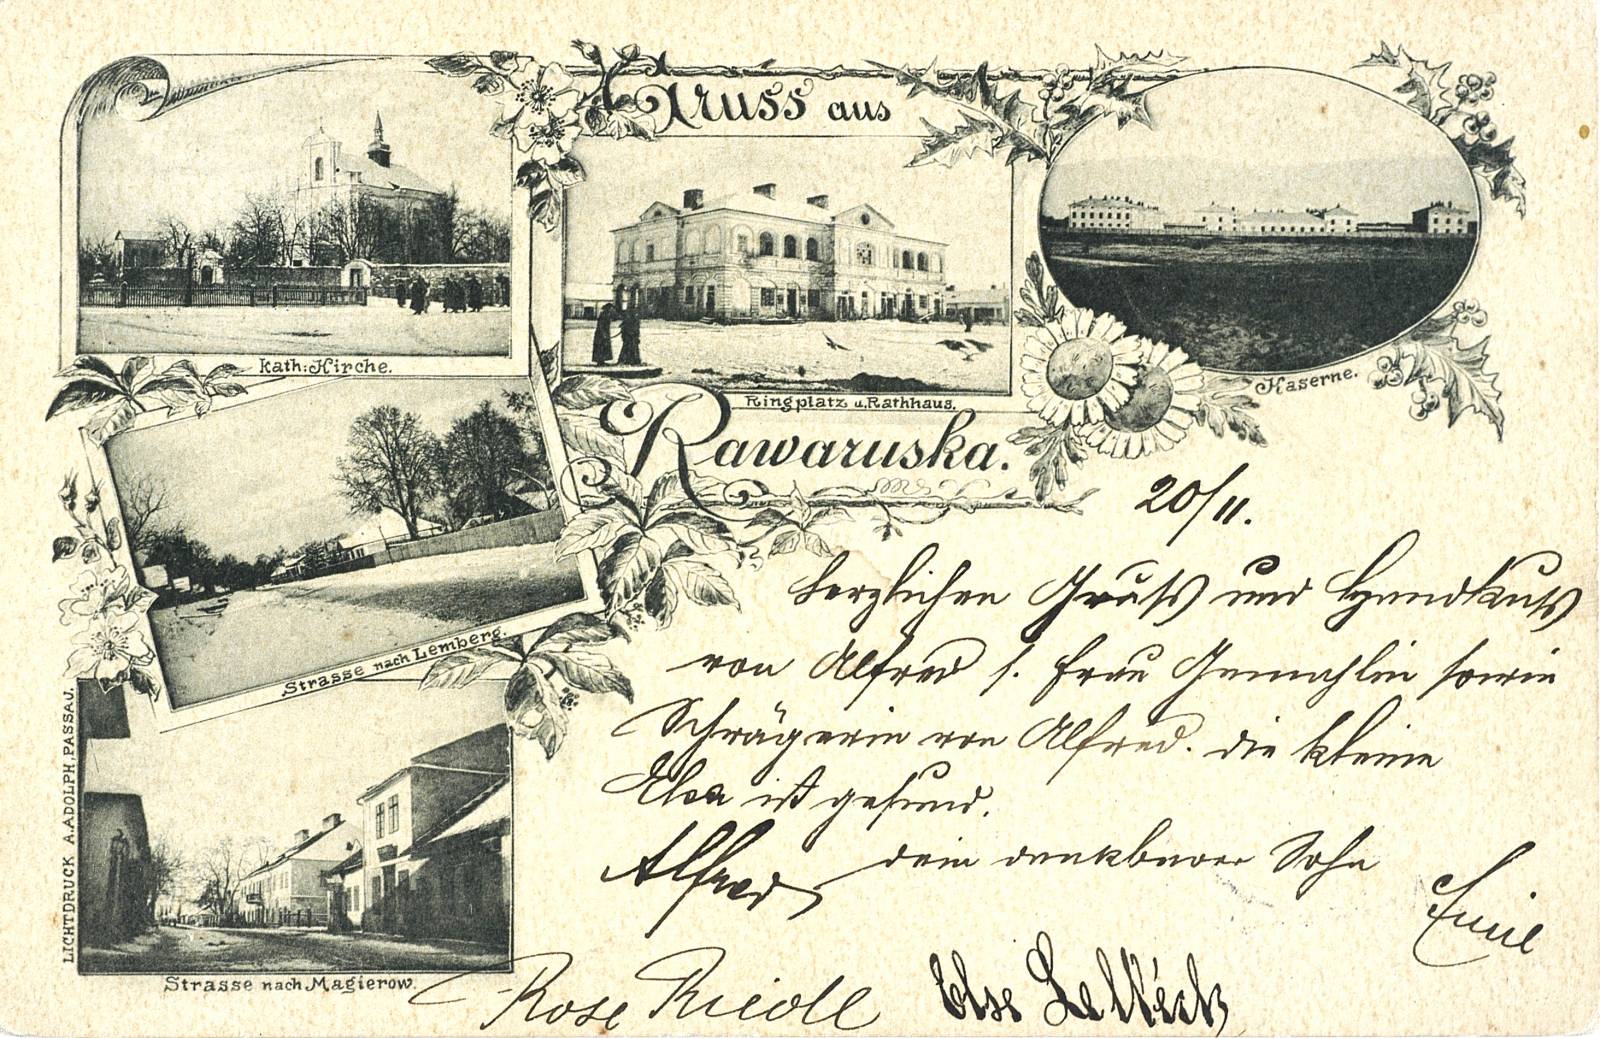 Gruss aus
kath: Kirche.
Ringplatz u. Rathhaus.
Kaserne.
Rawaruska.
Strasse nach Lemberg.
Strasse nach Magierow.
LICHTDRUCK A. ADOLPH, PASSAU.
20/11.
Herzlichen Gruss und Handkuss
von Alfred s. Frau Gemahlin sowie
Schwägerin von Alfred. die kleine
Elsa ist gesund.
dein dankbarer Sohn
Alfred
Emil
Rose Riedl
Else